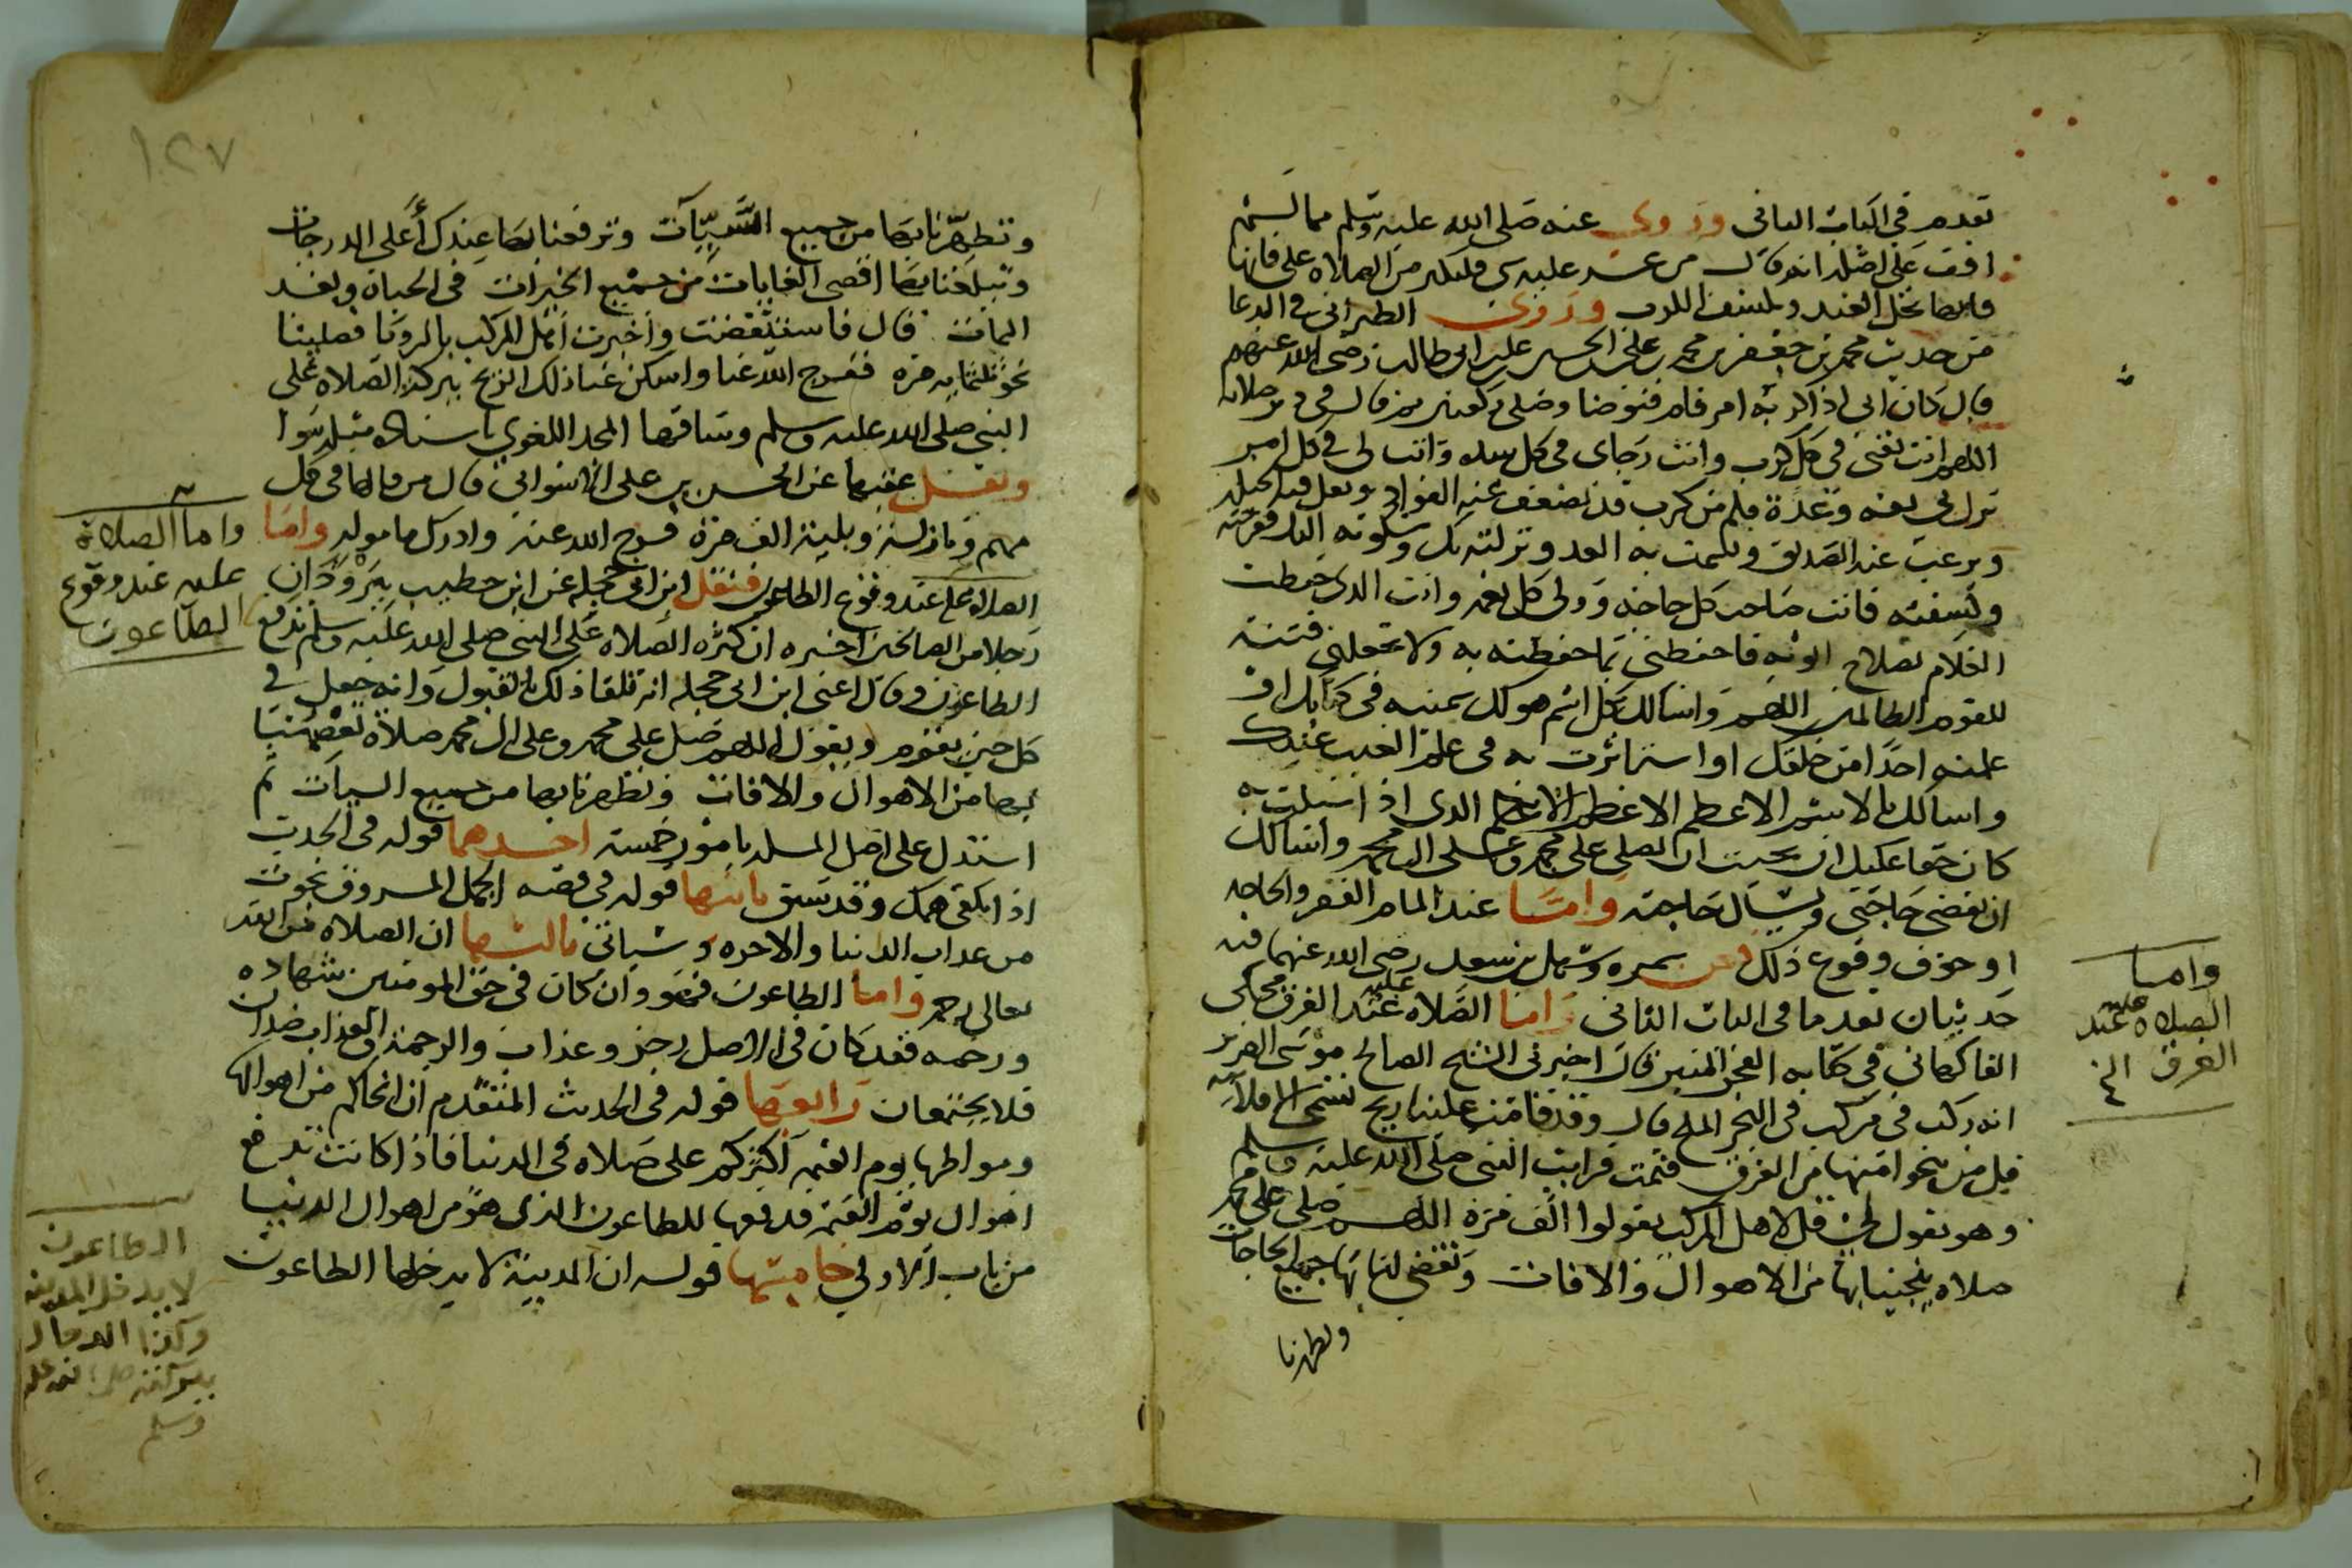 تقدم في الباب الثاني وروى عنه صلى الله عليه وسلم مما لم
اقف على اصله انه قال من عسر عليه شي فليكثر من الصلاه على فانها
فانها تحل العقد وتكشف الكرب وروى الطبراني في الدعا
من حديث محمد بن جعفر بن محمد بن على بن الحسين بن على بن ابى طالب رضى الله عنهم
قال كان ابى اذا كربه امر قام فتوضا وصلى ركعتين ثم قال في دبر صلاته
اللهم انت ثقتى في كل كرب وانت رجاى في كل شده وانت لى في كل امر
نزل بى ثقه وعدة فكم من كرب قد يضعف عنه الفواد وتقل فيه الحيله
ويرغب عنه الصديق ويشمت به العدو انزلته بك وشكوته اليك ففرجته
وكشفته فانت صاحب كل حاجه وولى كل نعمه وانت الذى حفظت
الغلام بصلاح ابويه فاحفظنى بما حفظته به ولا تجعلنى فتنة
للقوم الظالمين اللهم واسالك بكل اسم هو لك سميته في كتابك او
علمته احدا من خلقك او استاثرت به في علم الغيب عندك
واسالك بالاسم الاعظم الاعظم الاعظم الذى اذا سيلت به
كان حقا عليك ان تجيب ان تصلى على محمد وعلى ال محمد واسالك
ان تقضى حاجتى ويسال حاجته واما عند المام الفقر والحاجه
او خوف وقوع ذلك فعن سمره وسهل بن سعد رضى الله عنهما فيه
حديثان تقدما في الباب الثانى واما الصلاه عليه عند الغرق فحكى
الفاكهانى في كتابه الفجر المنير قال اخبرنى الشيخ الصالح موسى الضرير
انه ركب في مركب في البحر الملح قال وقد قامت علينا ريح تسمى الاقلابيه
قل من ينجوا منها من الغرق فنمت فرايت النبى صلى الله عليه وسلم
وهو يقول لى قل لاهل المركب يقولوا الف مرة اللهم صلى على محمد
صلاه تنجينا بها من الاهوال والافات وتقضى لنا بها جميع الحاجات
وتطهرنا
واما
الصلاه عليه عند
الغرق الخ
١٢٧
وتطهرنا بها من جميع السيئات وترفعنا بها عندك أعلى الدرجات
وتبلغنا بها اقصى الغايات من جميع الخيرات في الحياة وبعد
الممات قال فاستيقضت واخبرت اهل المركب بالرويا فصلينا
نحو ثلثمايه مره ففرج الله عنا واسكن عنا ذلك الريح ببركة الصلاه على
النبى صلى الله عليه وسلم وساقها المجد اللغوى باسناده مثله سوا
ونقل عقبها عن الحسن بن على الاسوانى قال من قالها في كل
مهم ونازلة وبلية الف مرة فرج الله عنه وادرك مامولہ واما
الصلاة عليه عند وقوع الطاعون فنقل ابن ابى حجله عن ابن خطيب يبرودان
رجلا من الصالحين اخبره ان كثره الصلاه على النبى صلى الله عليه وسلم تدفع
الطاعون وقال اعنى ابن ابى حجله انه تلقا ذلك بالقبول وانه جعل في
كل حين يقوم ويقول اللهم صل على محمد وعلى ال محمد صلاة تعصمنا
بها من الاهوال والافات وتطهرنا بها من جميع السيات ثم
استدل على اصل المسله بامور خمسة احدهما قوله في الحديث
اذا تكفى همك وقد سبق ثانيها قوله في قصه الجمل المسروق نجوت
من عذاب الدنيا والاخره وسياتى ثالثها ان الصلاه من الله
تعالى رحمه واما الطاعون فهو وان كان في حق المومنين شهاده
ورحمه فقد كان في الاصل رجز وعذاب والرحمة والعذاب ضدان
فلا يجتمعان رابعها قوله في الحديث المتقدم ان انجاكم من اهوالها
ومواطنها يوم القيمه اكثركم على صلاه في الدنيا فاذا كانت تدفع
اهوال يوم القيمة فدفعها للطاعون الذى هو من اهوال الدنيا
من باب الاولى خامسها قوله ان المدينة لا يدخلها الطاعون
واما الصلاة
عليه عند وقوع
الطاعون
الطاعون
لا يدخل المدينه
وكذا الدجال
ببركته صلى الله عليه
وسلم